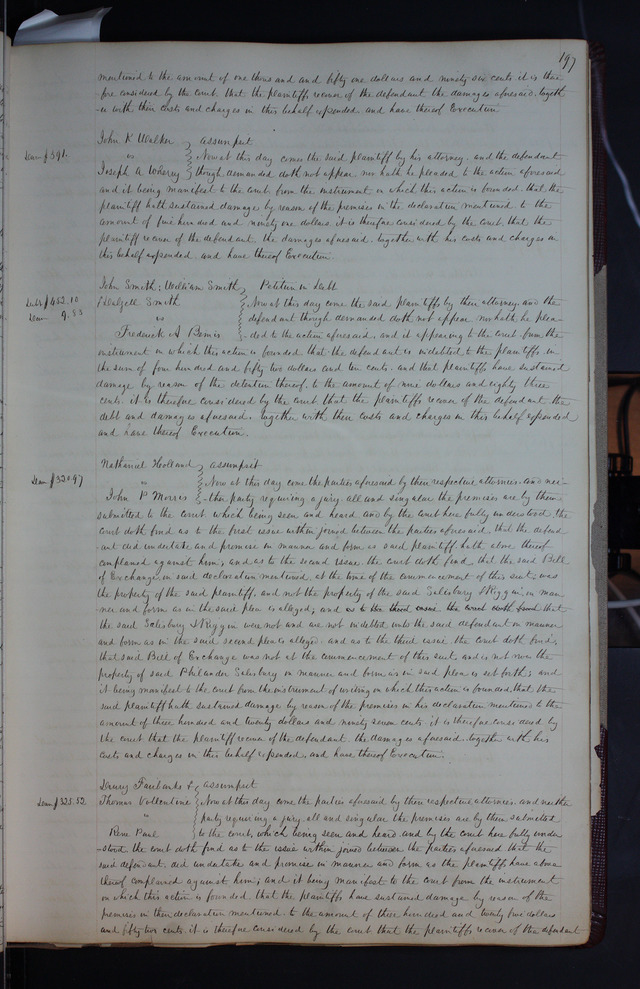 197
mentioned to the amount of one thousand and fifty one dollars and ninety six cents it is there
fore considered by the court that the plaintiffs recover of the defendant the damages aforesaid. togeth
er with their costs and charges in this behalf expended and have thereof Execution
John K Walker } assumpsit
Dam $591. vs Now at this day comes the said plaintiff by his attorney. and the defendant
Joseph A Wherry though demanded doth not appear nor hath he pleaded to the action aforesaid
and it being manifest to the court from the instrument on which this action is founded. that the
plaintiff hath sustained damage by reason of the premises in the declaration mentioned to the
amount of five hundred and ninety one dollars it is therefore considered by the court that the
plaintiff recover of the defendant the damages aforesaid. together with his costs and charges in
this behalf expended. and have thereof Execution
John Smith, William Smith } Petition in Debt
Debt $452.10 Dalzell Smith Now at this day come the said plaintiffs by their attorney. and the
Dam 9.83 vs defendant though demanded doth not appear nor hath he plea-
Frederick A Bemis ded to the action aforesaid. and it appearing to the court from the
instrument on which this action is founded that the defendant is indebted to the plaintiffs in
the sum of four hundred and fifty two dollars and ten cents. and that plaintiffs have sustained
damage by reason of the detention thereof to the amount of nine dollars and eighty three
cents. it is therefore considered by the court that the plaintiffs recover of the defendant the
debt and damages aforesaid. together with their costs and charges in this behalf expended
and have thereof Execution.
Nathaniel Holland } assumpsit
Dam $320.97 " Now at this day come the parties aforesaid by their respective attornies. and nei-
John P Morris ther party requiring a jury all and singular the premises are by them
submitted to the court which being seen and heard and by the court here fully understood. the
court doth find as to the first issue within joined between the parties aforesaid. that the defend
ant did undertake and promise in manner and form as said plaintiff hath above thereof
complained against him; and as to the second issue the court doth find that the said Bill
of Exchange in said declaration mentioned, at the time of the commencement of this suit, was
the property of the said plaintiff. and not the property of the said Salesbury & Riggin, in man
ner and form as in the said plea is alleged; and as to the third issue the court doth find that
the said Salesbury & Riggin were not and are not indebted unto the said defendant in manner
and form as in the said second plea is alleged. and as to the third issue the court doth find,
that said Bill of Exchange was not at the commencement of this suit, and is not now the
property of said Philander Salesbury in manner and form as in said plea is set forth; and
it being manifest to the court from the instrument of writing on which this action is founded, that the
said plaintiff hath sustained damage by reason of the premises in his declaration mentioned to the
amount of three hundred and twenty dollars and ninety seven cents. it is therefore considered by
the court that the plaintiff recover of the defendant the damages aforesaid. together with his
costs and charges in this behalf expended, and have thereof Execution.
Drury Fairbanks & } assumpsit
Dam $325.52. Thomas Vallentine Now at this day come the parties aforesaid by their respective attornies. and neither
" party requiring a jury all and singular the premises are by them submitted
Rene Paul to the court, which being seen and heard. and by the court here fully under
stood. the court doth find as to the issue within joined between the parties aforesaid that the
said defendant. did undertake and promise in manner and form as the plaintiffs have above
thereof complained against him; and it being manifest to the court from the instrument
on which this action is founded that the plaintiffs have sustained damage by reason of the
premises in their declaration mentioned to the amount of three hundred and twenty five dollars
and fifty two cents. it is therefore considered by the court that the plaintiffs recover of the defendant